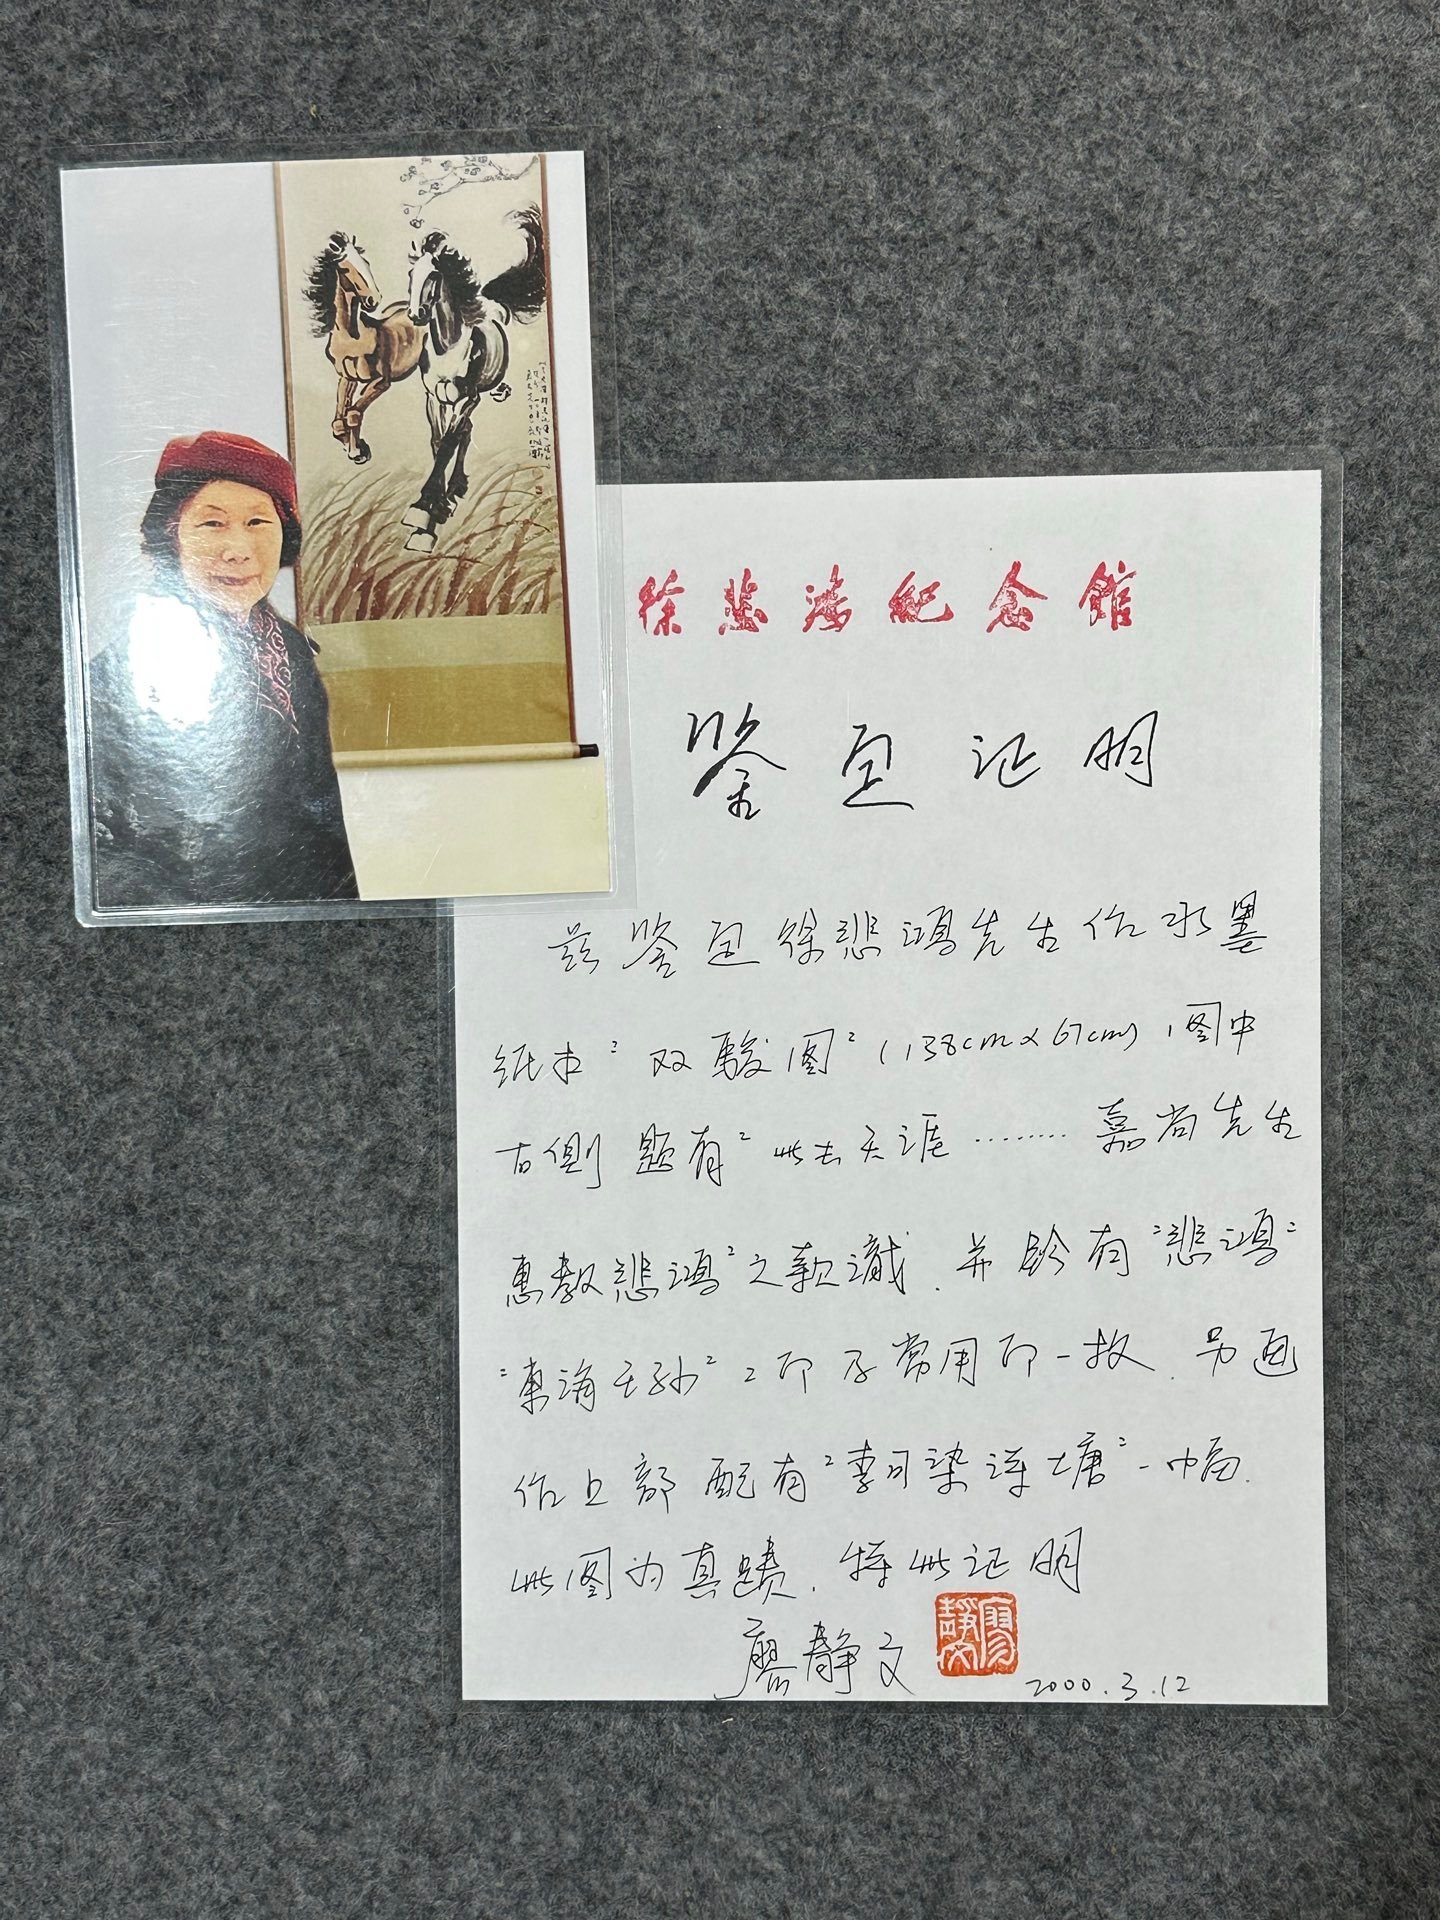 徐悲鸿纪念馆
鉴定证明
兹鉴定徐悲鸿先生作水墨
纸本"双骏图"(138cm×67cm),图中
右侧题有"此去天涯………嘉尚先生
惠教悲鸿"之款識.并鈐有"悲鸿"
"東海王孙"二印及常用印一枚.另画
作上部配有"李可染莲塘"一幅.
此图为真蹟.特此证明
廖静文
廖靜文
2000.3.12